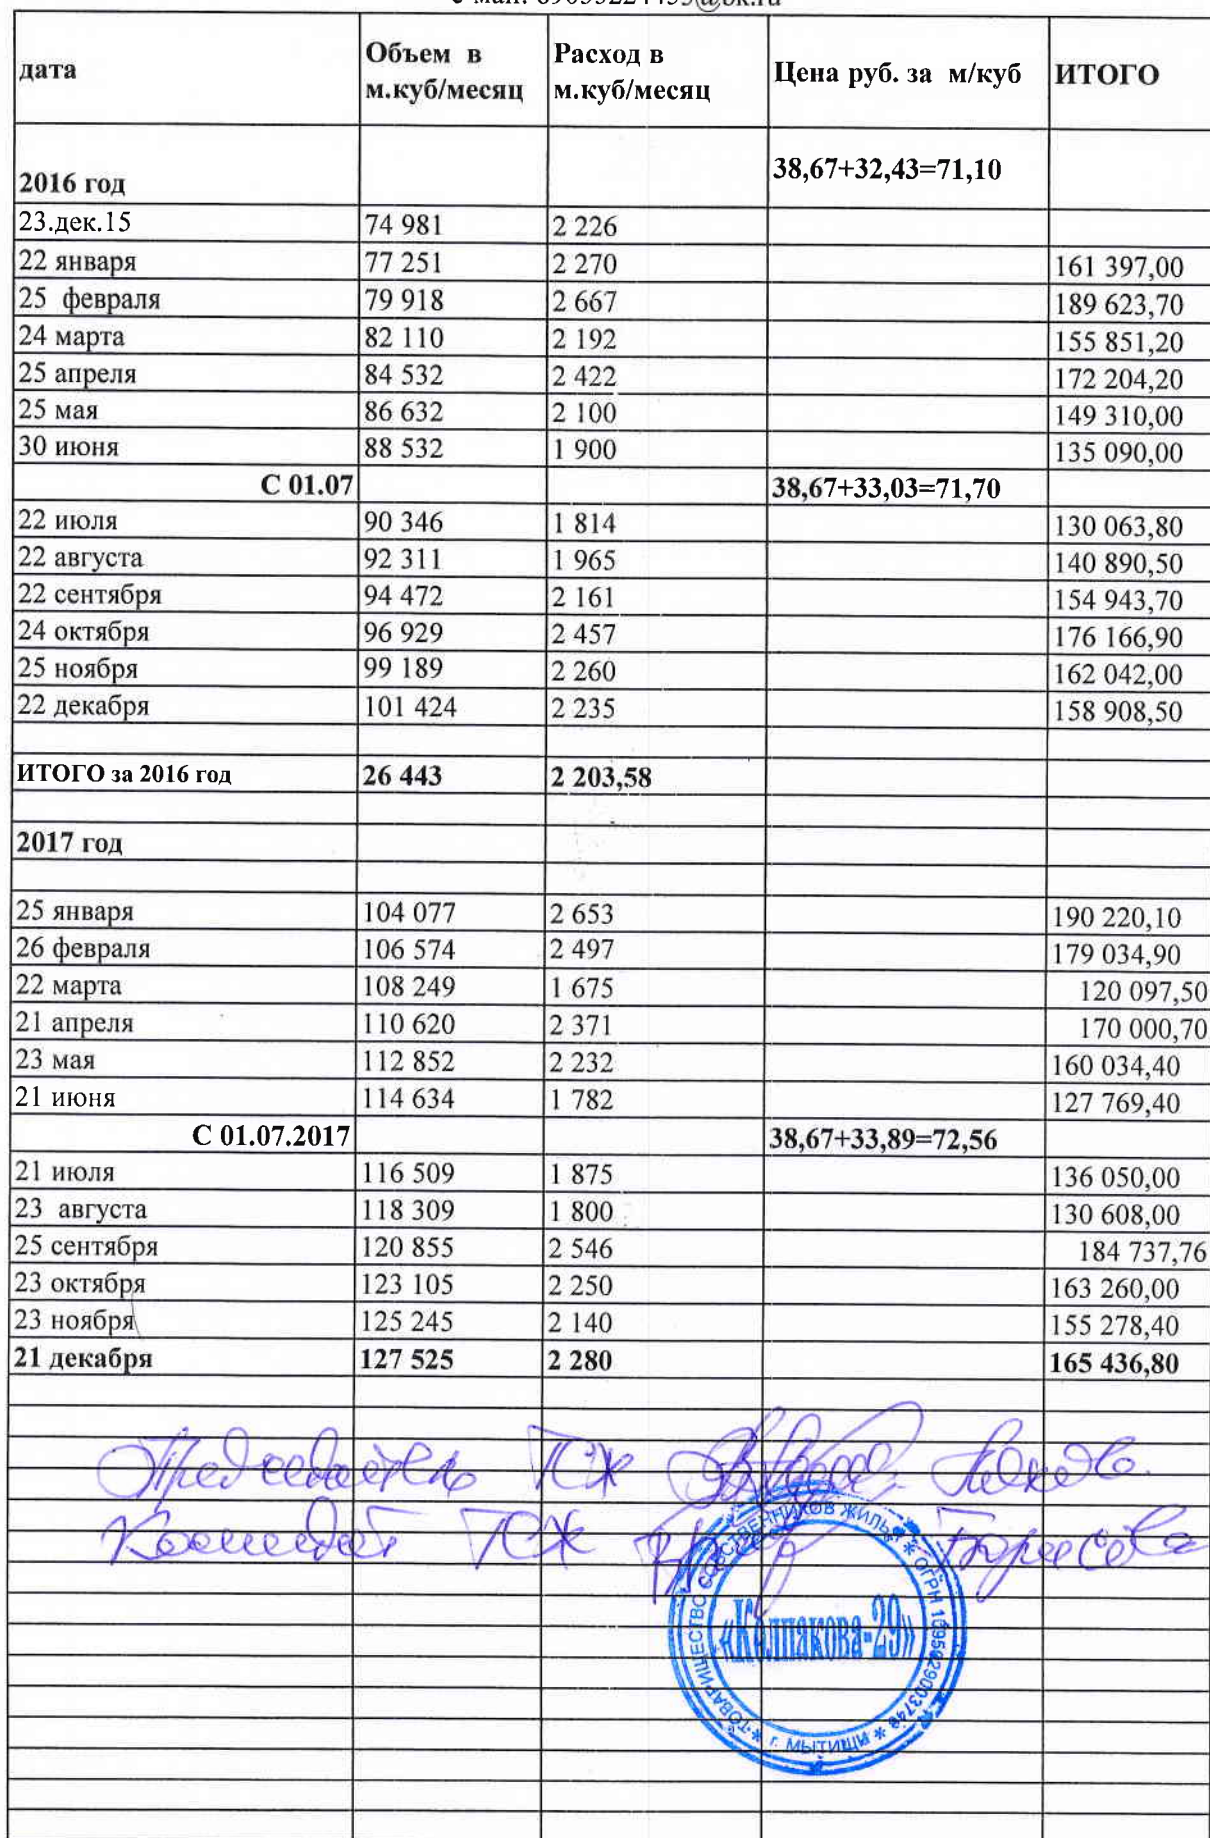 дата Объем в м.куб/месяц Расход в м.куб/месяц Цена руб. за м/куб ИТОГО
2016 год 38,67+32,43=71,10
23.дек.15 74 981 2 226
22 января 77 251 2 270 161 397,00
25 февраля 79 918 2 667 189 623,70
24 марта 82 110 2 192 155 851,20
25 апреля 84 532 2 422 172 204,20
25 мая 86 632 2 100 149 310,00
30 июня 88 532 1 900 135 090,00
С 01.07 38,67+33,03=71,70
22 июля 90 346 1 814 130 063,80
22 августа 92 311 1 965 140 890,50
22 сентября 94 472 2 161 154 943,70
24 октября 96 929 2 457 176 166,90
25 ноября 99 189 2 260 162 042,00
22 декабря 101 424 2 235 158 908,50
ИТОГО за 2016 год 26 443 2 203,58
2017 год
25 января 104 077 2 653 190 220,10
26 февраля 106 574 2 497 179 034,90
22 марта 108 249 1 675 120 097,50
21 апреля 110 620 2 371 170 000,70
23 мая 112 852 2 232 160 034,40
21 июня 114 634 1 782 127 769,40
С 01.07.2017 38,67+33,89=72,56
21 июля 116 509 1 875 136 050,00
23 августа 118 309 1 800 130 608,00
25 сентября 120 855 2 546 184 737,76
23 октября 123 105 2 250 163 260,00
23 ноября 125 245 2 140 155 278,40
21 декабря 127 525 2 280 165 436,80
Председатель ТСЖ
ТСЖ Борисова
ТОВАРИЩЕСТВО СОБСТВЕННИКОВ ЖИЛЬЯ * ОГРН 1095029003740 * г. МЫТИЩИ *
«Колпакова-29»